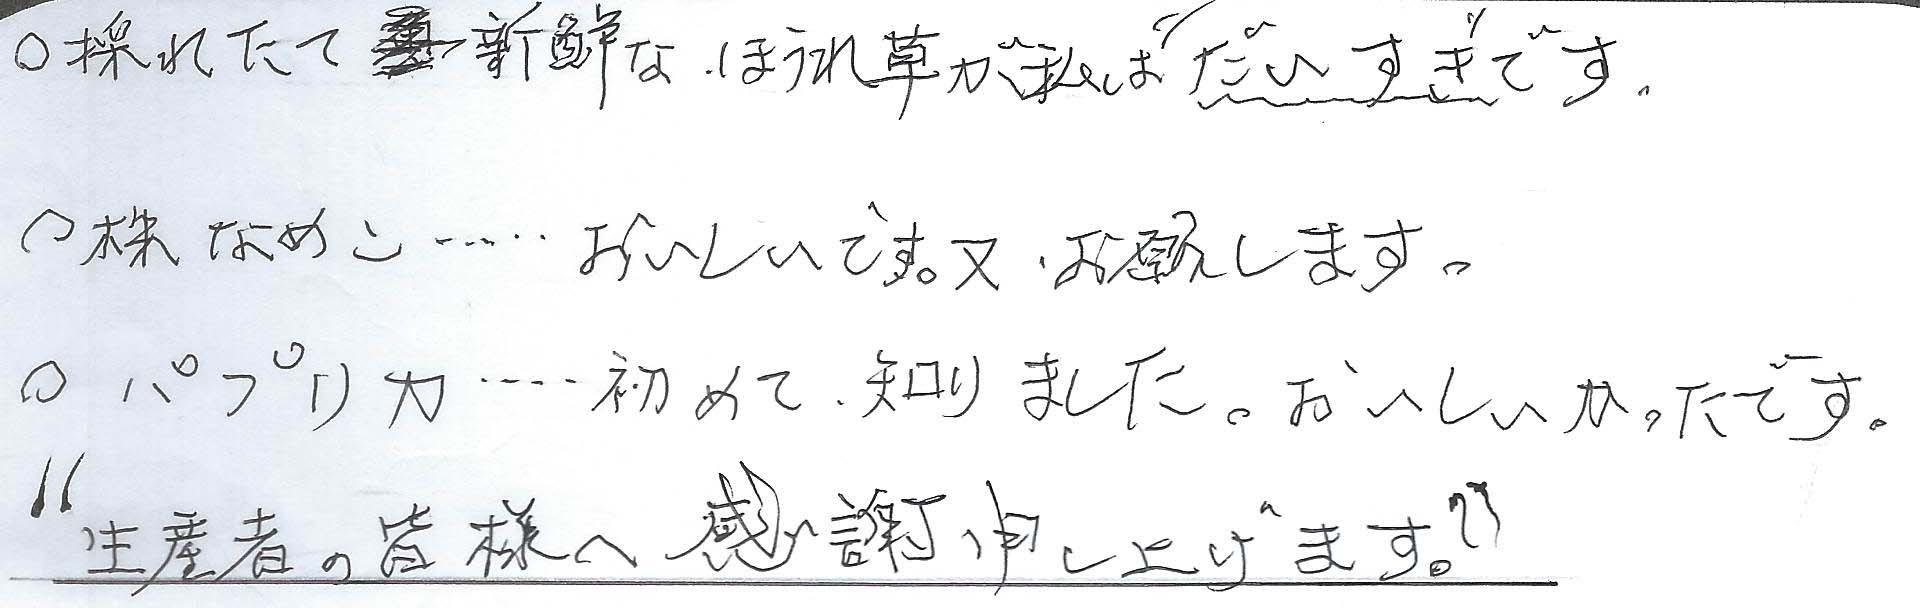 ○採れたて新鮮な、ほうれ草が私は"だいすき"です。
○株なめこ‥‥‥おいしいです。又、お願します。
○パプリカ‥‥初めて、知りました。おいしいかったです。
"生産者の皆様へ感謝申し上げます。"